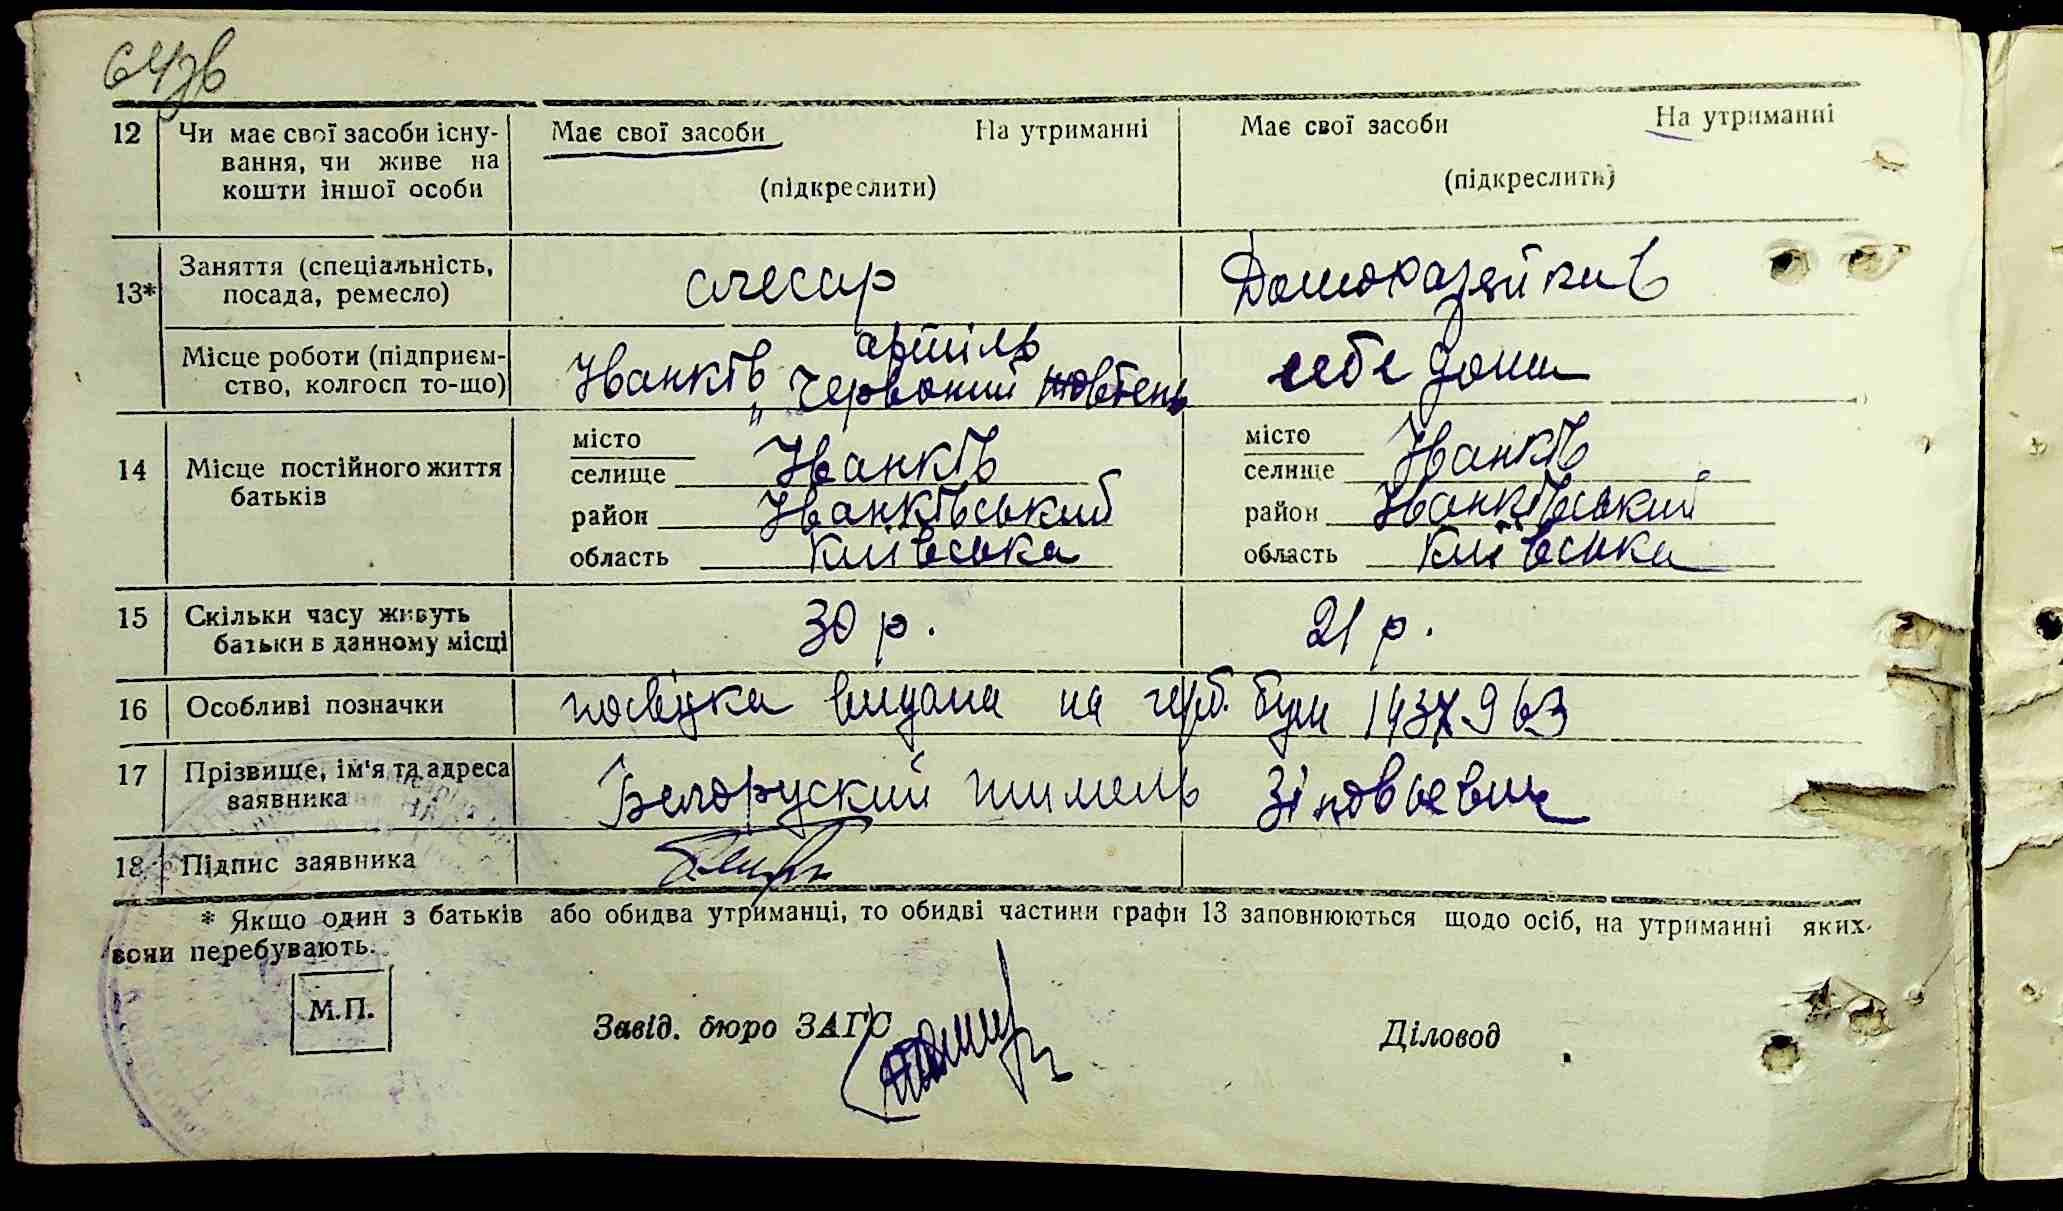 12 Чи має свої засоби існу-
вання, чи живе на
кошти іншої особи
Має свої засоби На утриманні
(підкреслити)
Має свої засоби На утриманні
(підкреслити)
13* Заняття (спеціальність,
посада, ремесло)
слесар
Домохазяйка
Місце роботи (підприєм-
ство, колгосп то-що)
артіль
Іванків „Червоний Жовтень
себе дома
14 Місце постійного життя
батьків
місто
селище Іванків
район Іванківський
область Київська
місто
селище Іванків
район Іванківський
область Київська
15 Скільки часу живуть
батьки в данному місці
30 р.
21 р.
16 Особливі позначки
посвідка видана на герб. бум 1437963
17 Прізвище, ім'я та адреса
заявника
Белоруский Зіновьевич
18 Підпис заявника
* Якщо один з батьків або обидва утриманці, то обидві частини графи 13 заповнюються щодо осіб, на утриманні яких
вони перебувають.
М.П.
Завід. бюро ЗАГС
Діловод